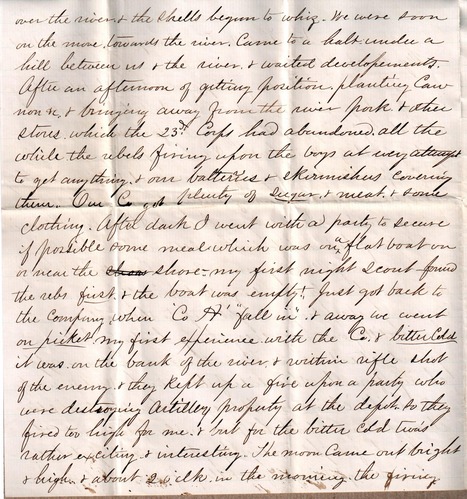 over the river, & the shells begun to whiz. We were soon
on the move towards the river. Came to a halt under a
hill between us & the river, & waited developements.
After an afternoon of getting position, planting Can
non &c, & bringing away from the river pork & other
stores, which the 23rd Corps had abandoned, all the
while the rebels firing upon the boys at every attempt
to get anything, & our batteries & skirmishers covering
them. Our Co got plenty of sugar, & meat, & some
clothing. After dark I went with a party to secure
if possible some meal which was on a flat boat on
or near the shore - my first night scout - found
the rebs first, & the boat was empty! Just got back to
the company, when "Co A" "fall in" & away we went
on picket, my first experience with the Co, & bitter cold
it was, on the bank of the river, & within rifle shot
of the enemy, & they kept up a fire upon a party who
were destroying Artillery property at the depot. So they
fired too high for me, & but for the bitter cold twas
rather exciting, & interesting. The moon came out bright
& high, & about 2 o'clk in the morning the firing